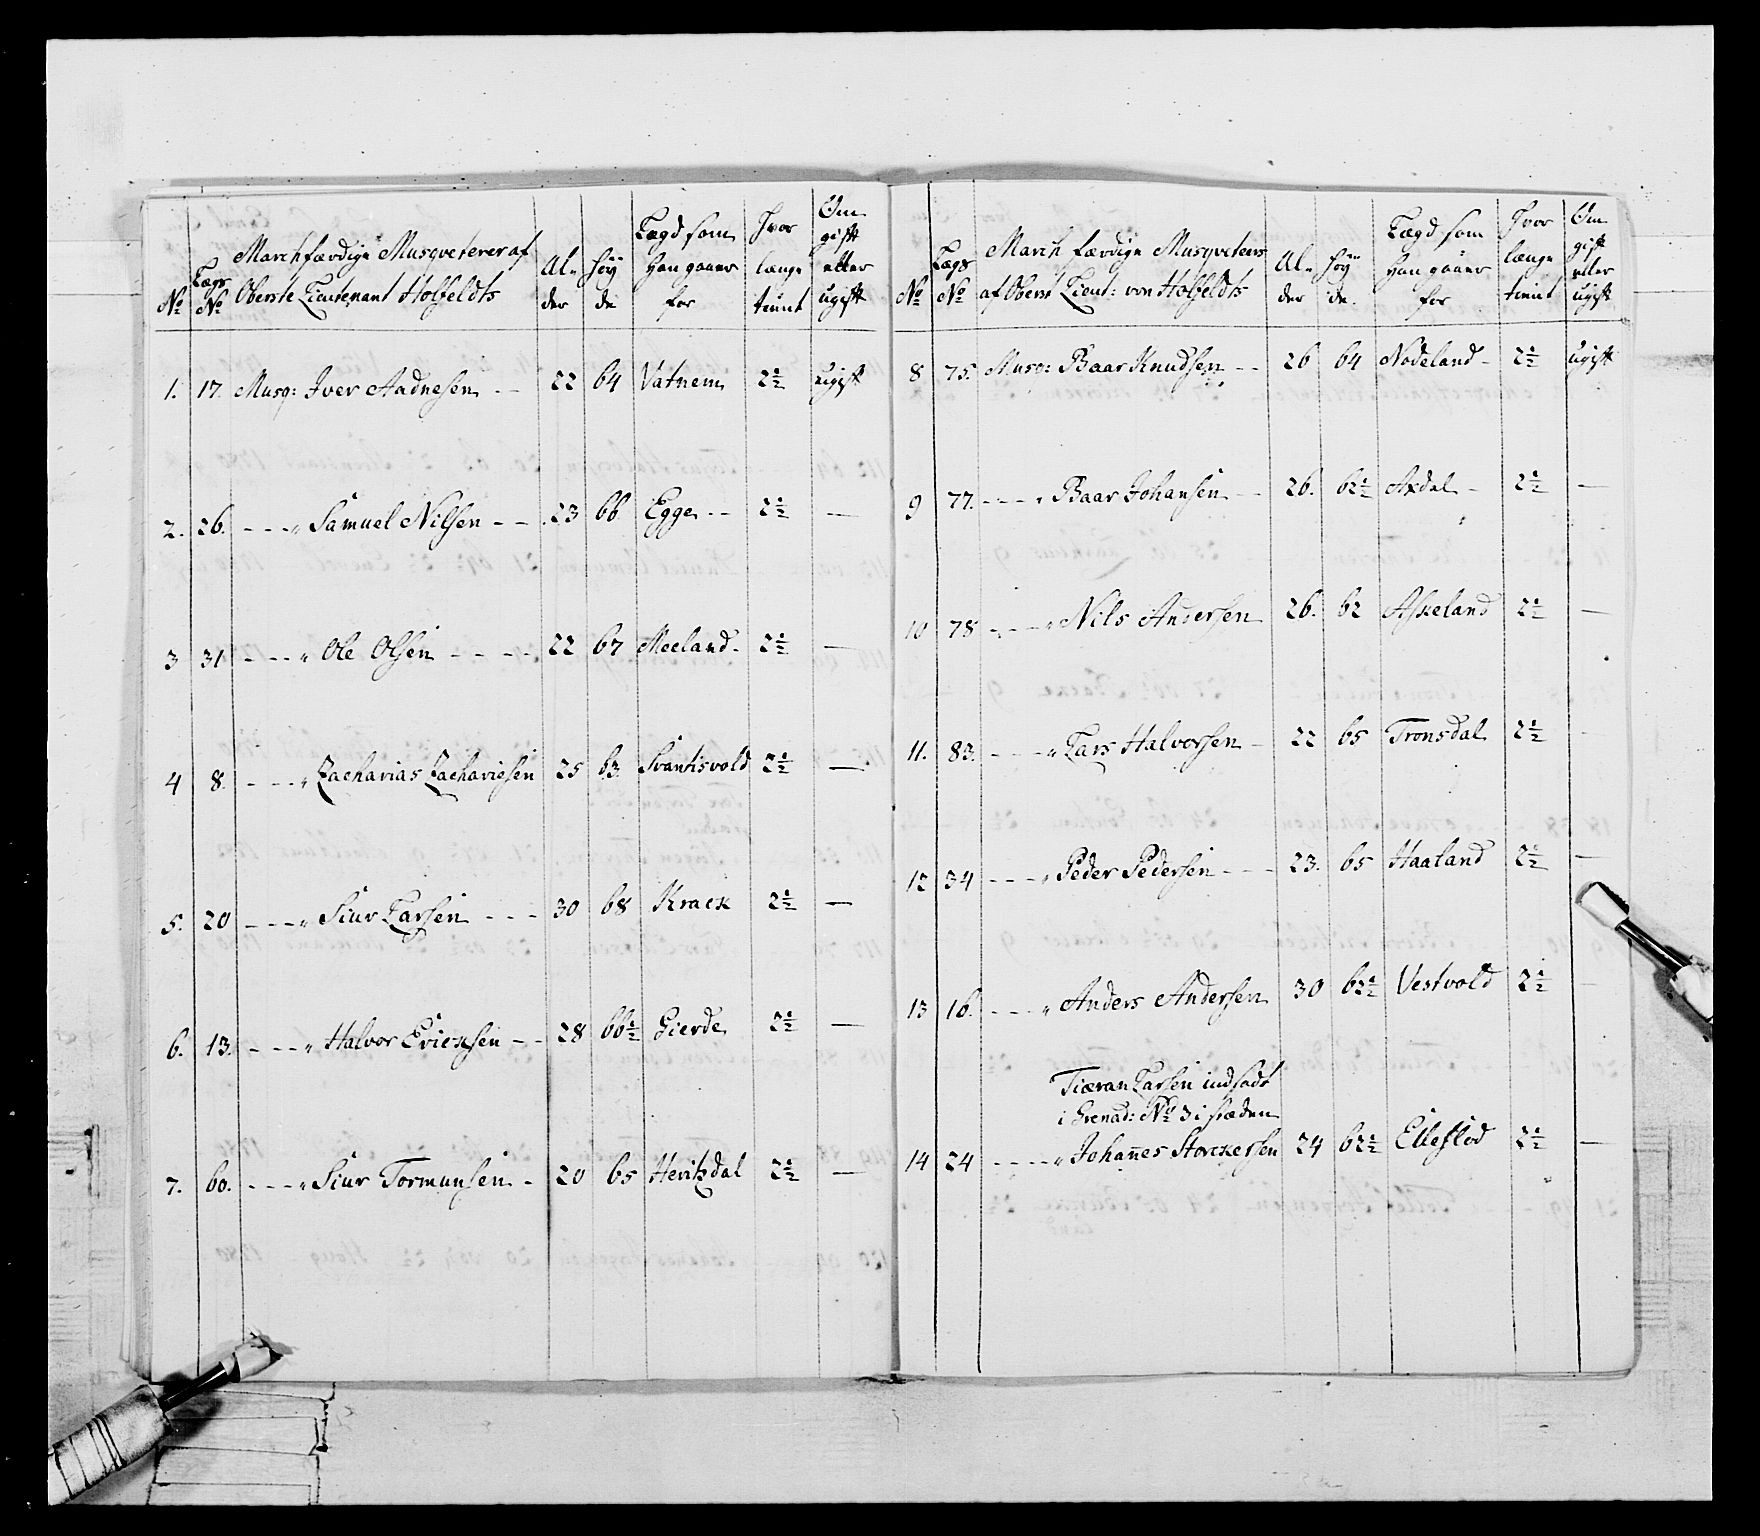 No Lægs No Marchfærdige Musqveterer af Oberste Lieutenant Holfeldts Al- der Høy de Lægd som han gaaer for Hvor længe tient Om gift eller ugift
1. 17. Musq: Iver Aadnesen - - 22 64 Vatnem 2½ ugift
2. 26. - - - " Samuel Nilsen - - 23 66 Egge - - 2½ —
3 31 - - - " Ole Olsen - - - - 22 67 Meeland - 2½ —
4 8. - - - " Zacharias Zachariesen 25 63. Svantisvold 2½ —
5. 20 - - - " Siur Larsen - - - 30 68 Krack 2½ —
6. 13. - - - " Halvor Ericksen - - 28 66½ Gierde 2½ —
7. 60. - - - " Siur Tormunsen - 20 65 Heritzdal 2½ —
No Lægs No March færdige Musqveteers af Oberst Lieut: von Holfeldts Al- der Høy de. Lægd som han gaaer for Hvor længe tient Om gift eller ugift
8 75. Musq: Baar Knudsen - - 26 64 Nodeland - 2½ ugift
9 77. - - - " Baar Johansen - - 26. 62½ Axdal - 2½ —
10 78 - - - " Nils Andersen 26. 62 Askeland 2½ —
11. 83. - - - " Lars Halvorsen - 22 65 Tronsdal 2½ -
12 34 - - - " Peder Pedersen - - - 23. 65 Haaland 2½ —
13 16. - - - " Anders Andersen 30 62½ Vestvold 2½ -
Tiæran Larsen indsadt
i Grenad: No 3 i stæden
14 24 - - - - " Johan̄es Storckersen 24 62½ Ellefsiod 2½ —